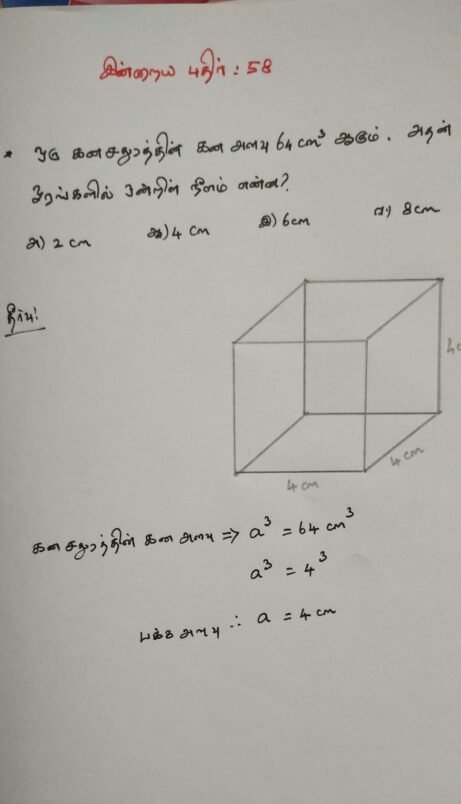 இன்றைய புதிர் : 58
* ஒரு கனசதுரத்தின் கன அளவு 64 cm³ ஆகும். அதன்
ஓரங்களில் ஒன்றின் நீளம் என்ன?
அ) 2 cm ஆ) 4 cm இ) 6cm ஈ) 8cm
தீர்வு:
4c
4 cm
4 cm
கன சதுரத்தின் கன அளவு => a³ = 64 cm³
a³ = 4³
பக்க அளவு ∴ a = 4 cm